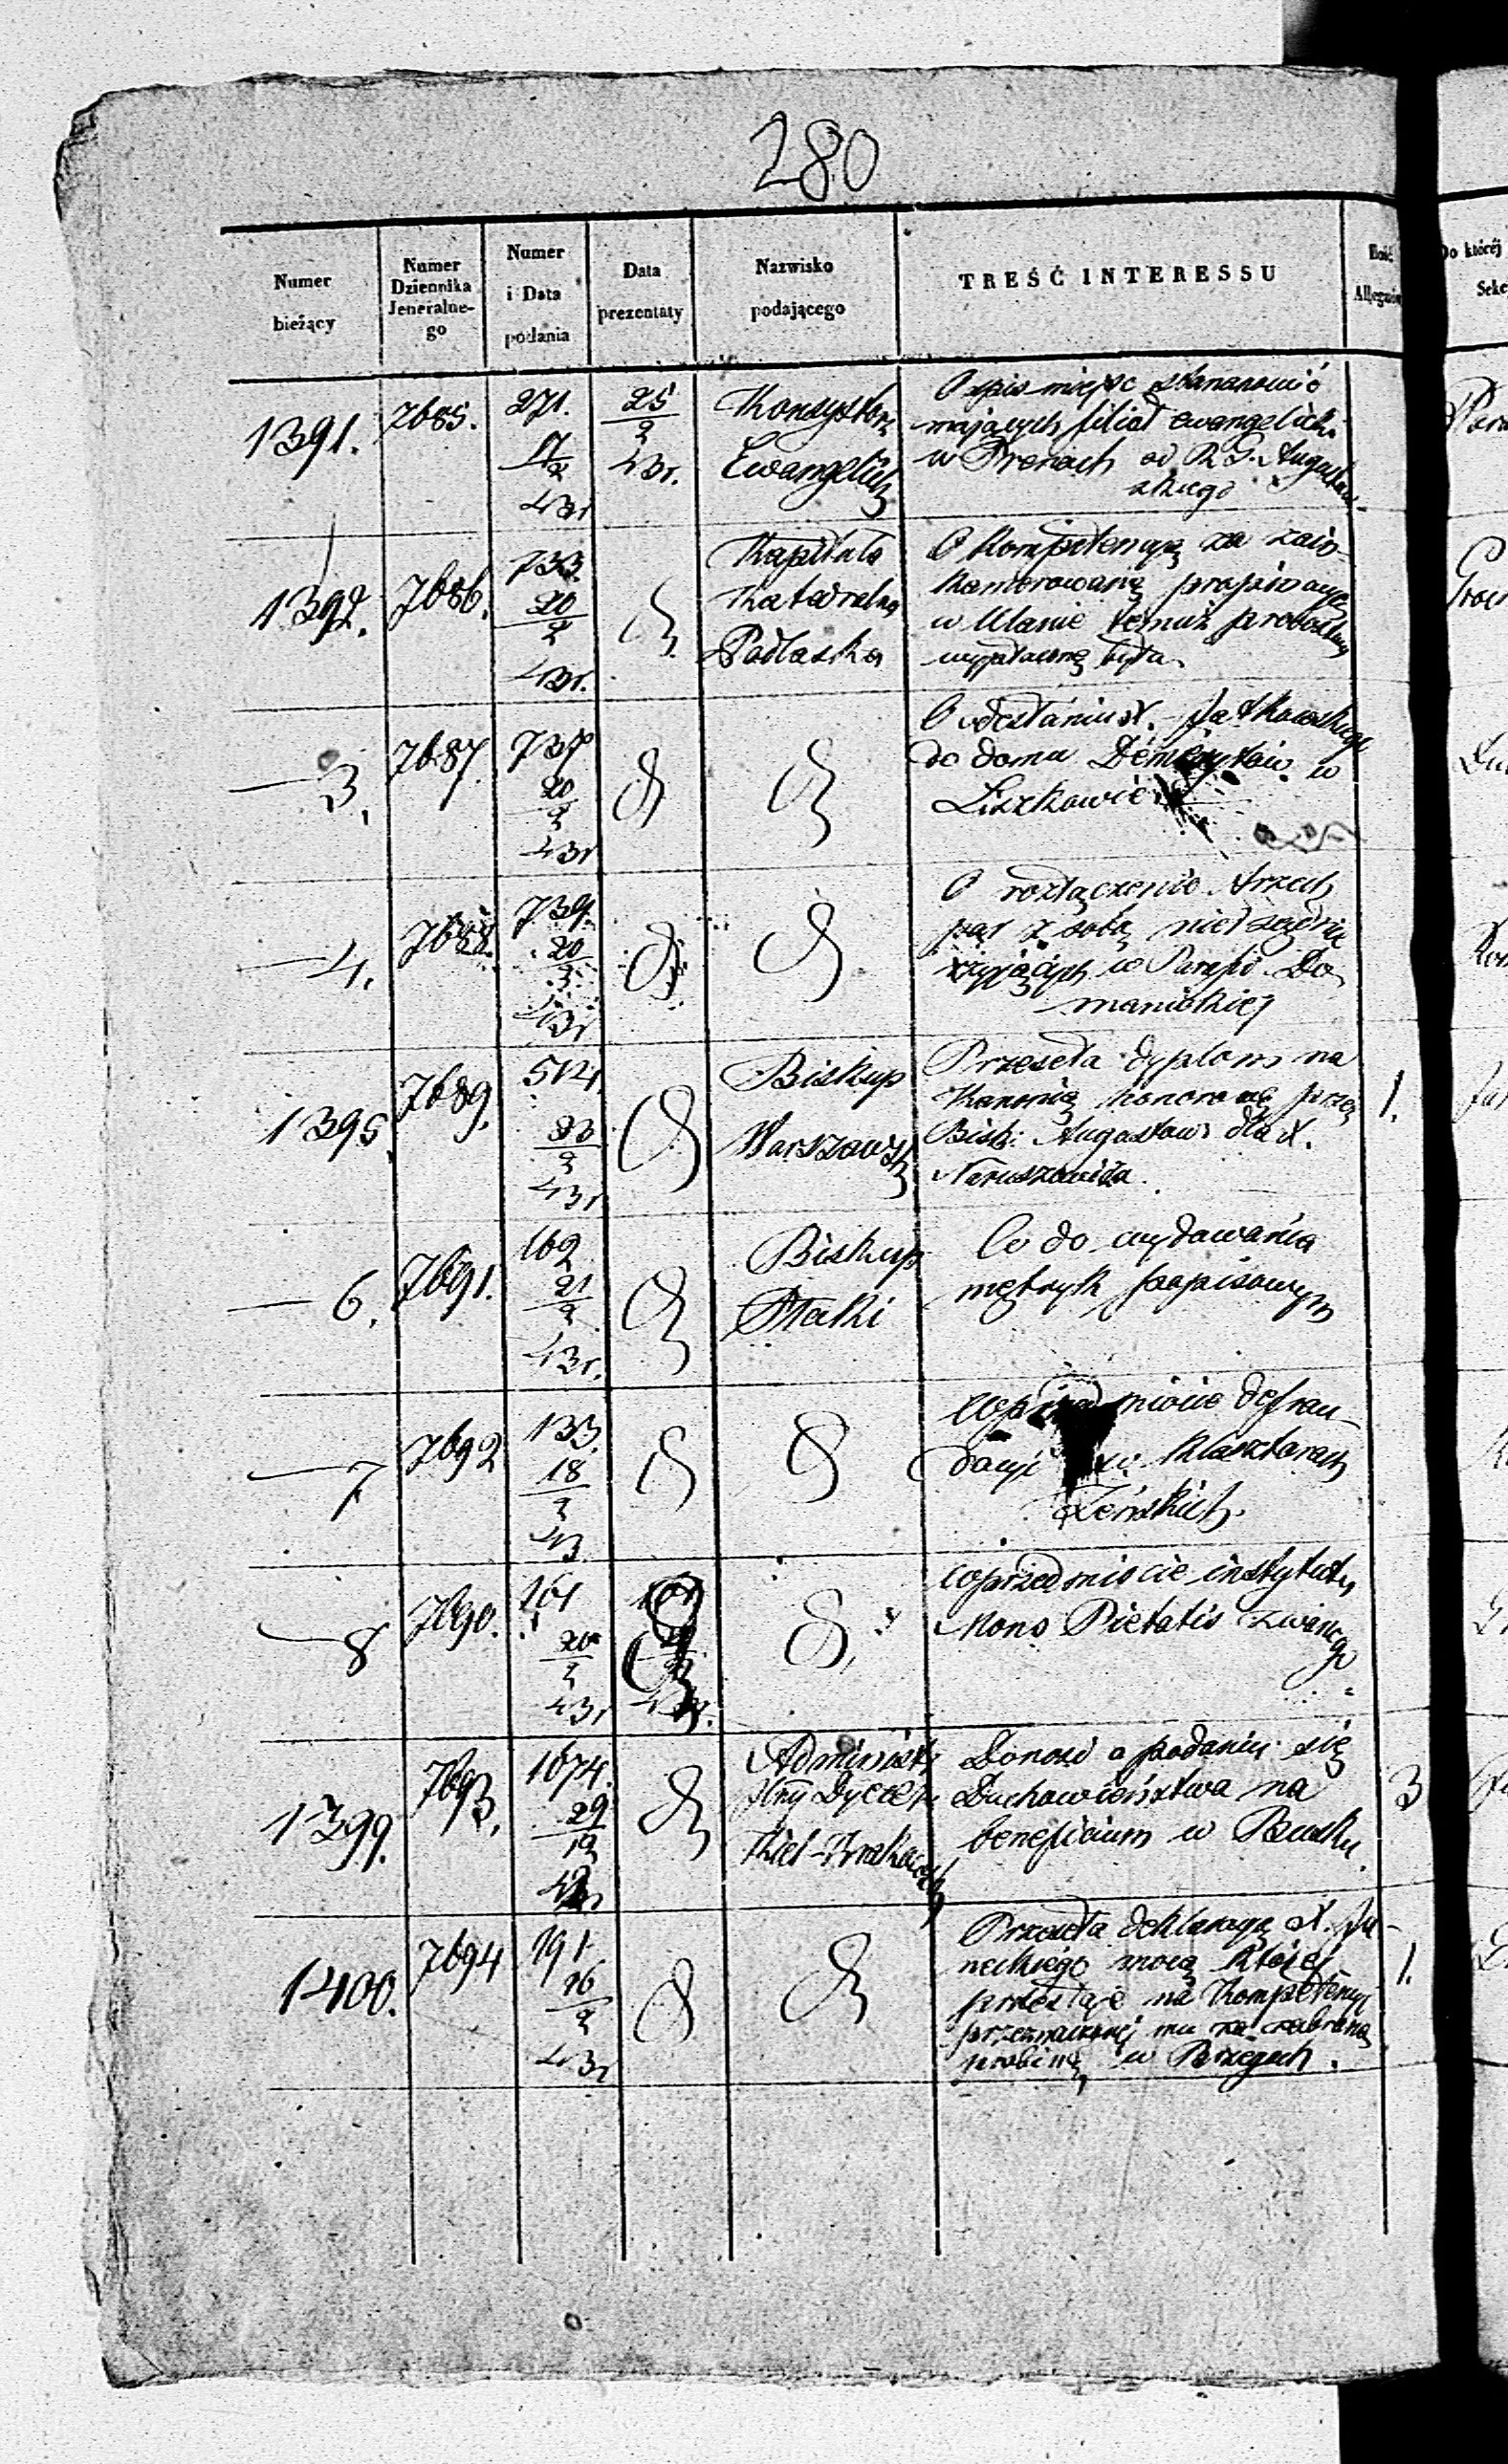 280
Numer bieżący
Numer Dziennika Jeneralne-go
Numer i Data podania
Data prezentaty
Nazwisko podającego
TREŚĆ INTERESSU
Ilość Allegatów
Do której Sekc
1391.
7685.
271.
17/2
43r
25/2
43r.
Konsystorz
Ewangelick
O spis miejsc stanowić
mających filiał ewangelicki
w Prenach od R. G. Augustow-
skiego
1392.
7686.
733.
20/2
43r.
Kapituła
Katedralna
Podlaska
O Kompetencyą za zain-
kamerowaną propinacyą
w Ulanie temuż proboszczowi
wypłaconą była.
3.
7687.
737
20/2
43r
O odesłaniu X.
do domu Demerytów w
Liszkowie
4.
7688.
739.
20/2
43r
O rozłączenie trzech
par z sobą nie
żyjących w Parafii Do-
manickiej
1395.
7689.
514.
23/2
43r
Biskup
Warszawsk
Przeseła dyplom na
Kanonią honorową przez
Bisk: Augustows dla X.
Naruszewicza.
1.
6.
7691.
169
21/2
43r.
Biskup
Płocki
Co do wydawania
metryk popisowym
7
7692
133.
18/2
43
W przedmiocie defrau-
dacyi w Klasztorach
Żeńskich.
8
7690.
161
20/2
43r
W przedmiocie instytutu
Mons Pietatis zwanego
1399.
7693.
1674.
29/12
42r
Administr
Dyece
Kiel-Krakowsk
Donosi o podaniu się
Duchowieństwa na
beneficium w Busku.
3
1400.
7694
191
16/2
43r
Przeseła deklaracyą X. Ju-
neckiego mocą której
przestaje na Kompetencyi
przeznaczonej mu za zabraną
w Brzegach.
1.